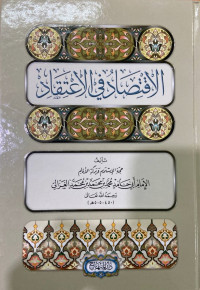 الاقتصاد في الاعتقاد
تأليف
حجة الإسلام وبركة الأنام
الإمام أبي حامد محمد بن محمد بن محمد الغزالي
رحمه الله تعالى
(٤٥٠-٥٠٥هـ)
دار المنهاج